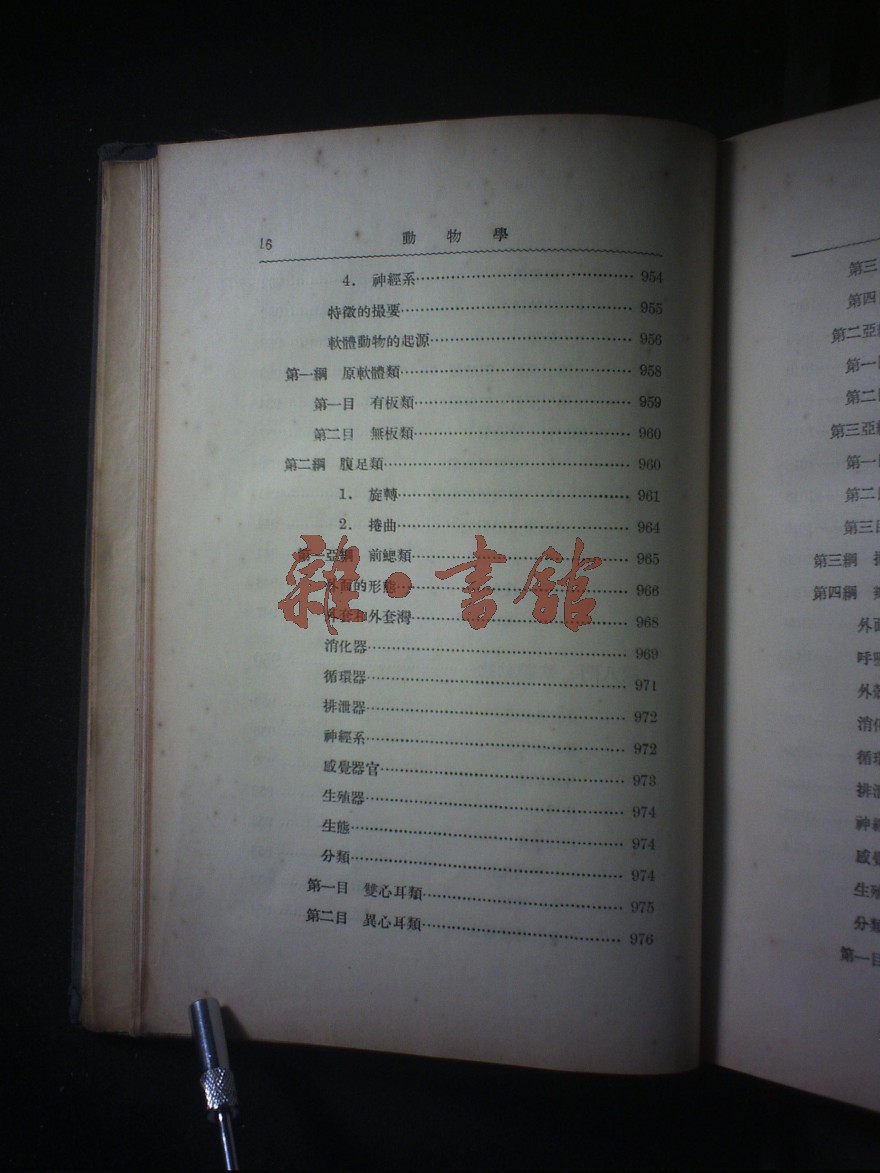 16 動物學
4. 神經系 954
特徵的撮要 955
軟體動物的起源 956
第一綱 原軟體類 958
第一目 有板類 959
第二目 無板類 960
第二綱 腹足類 960
1. 旋轉 961
2. 捲曲 964
第一亞綱 前鰓類 965
外面的形態 966
外套和外套灣 968
消化器 969
循環器 971
排泄器 972
神經系 972
感覺器官 973
生殖器 974
生態 974
分類 974
第一目 雙心耳類 975
第二目 異心耳類 976
雜·書館
第三
第四
第二亞
第一
第二
第三亞
第一
第二
第三
第三綱
第四綱
外面
呼
外
消化
循環
排
神經
感
生
分類
第一